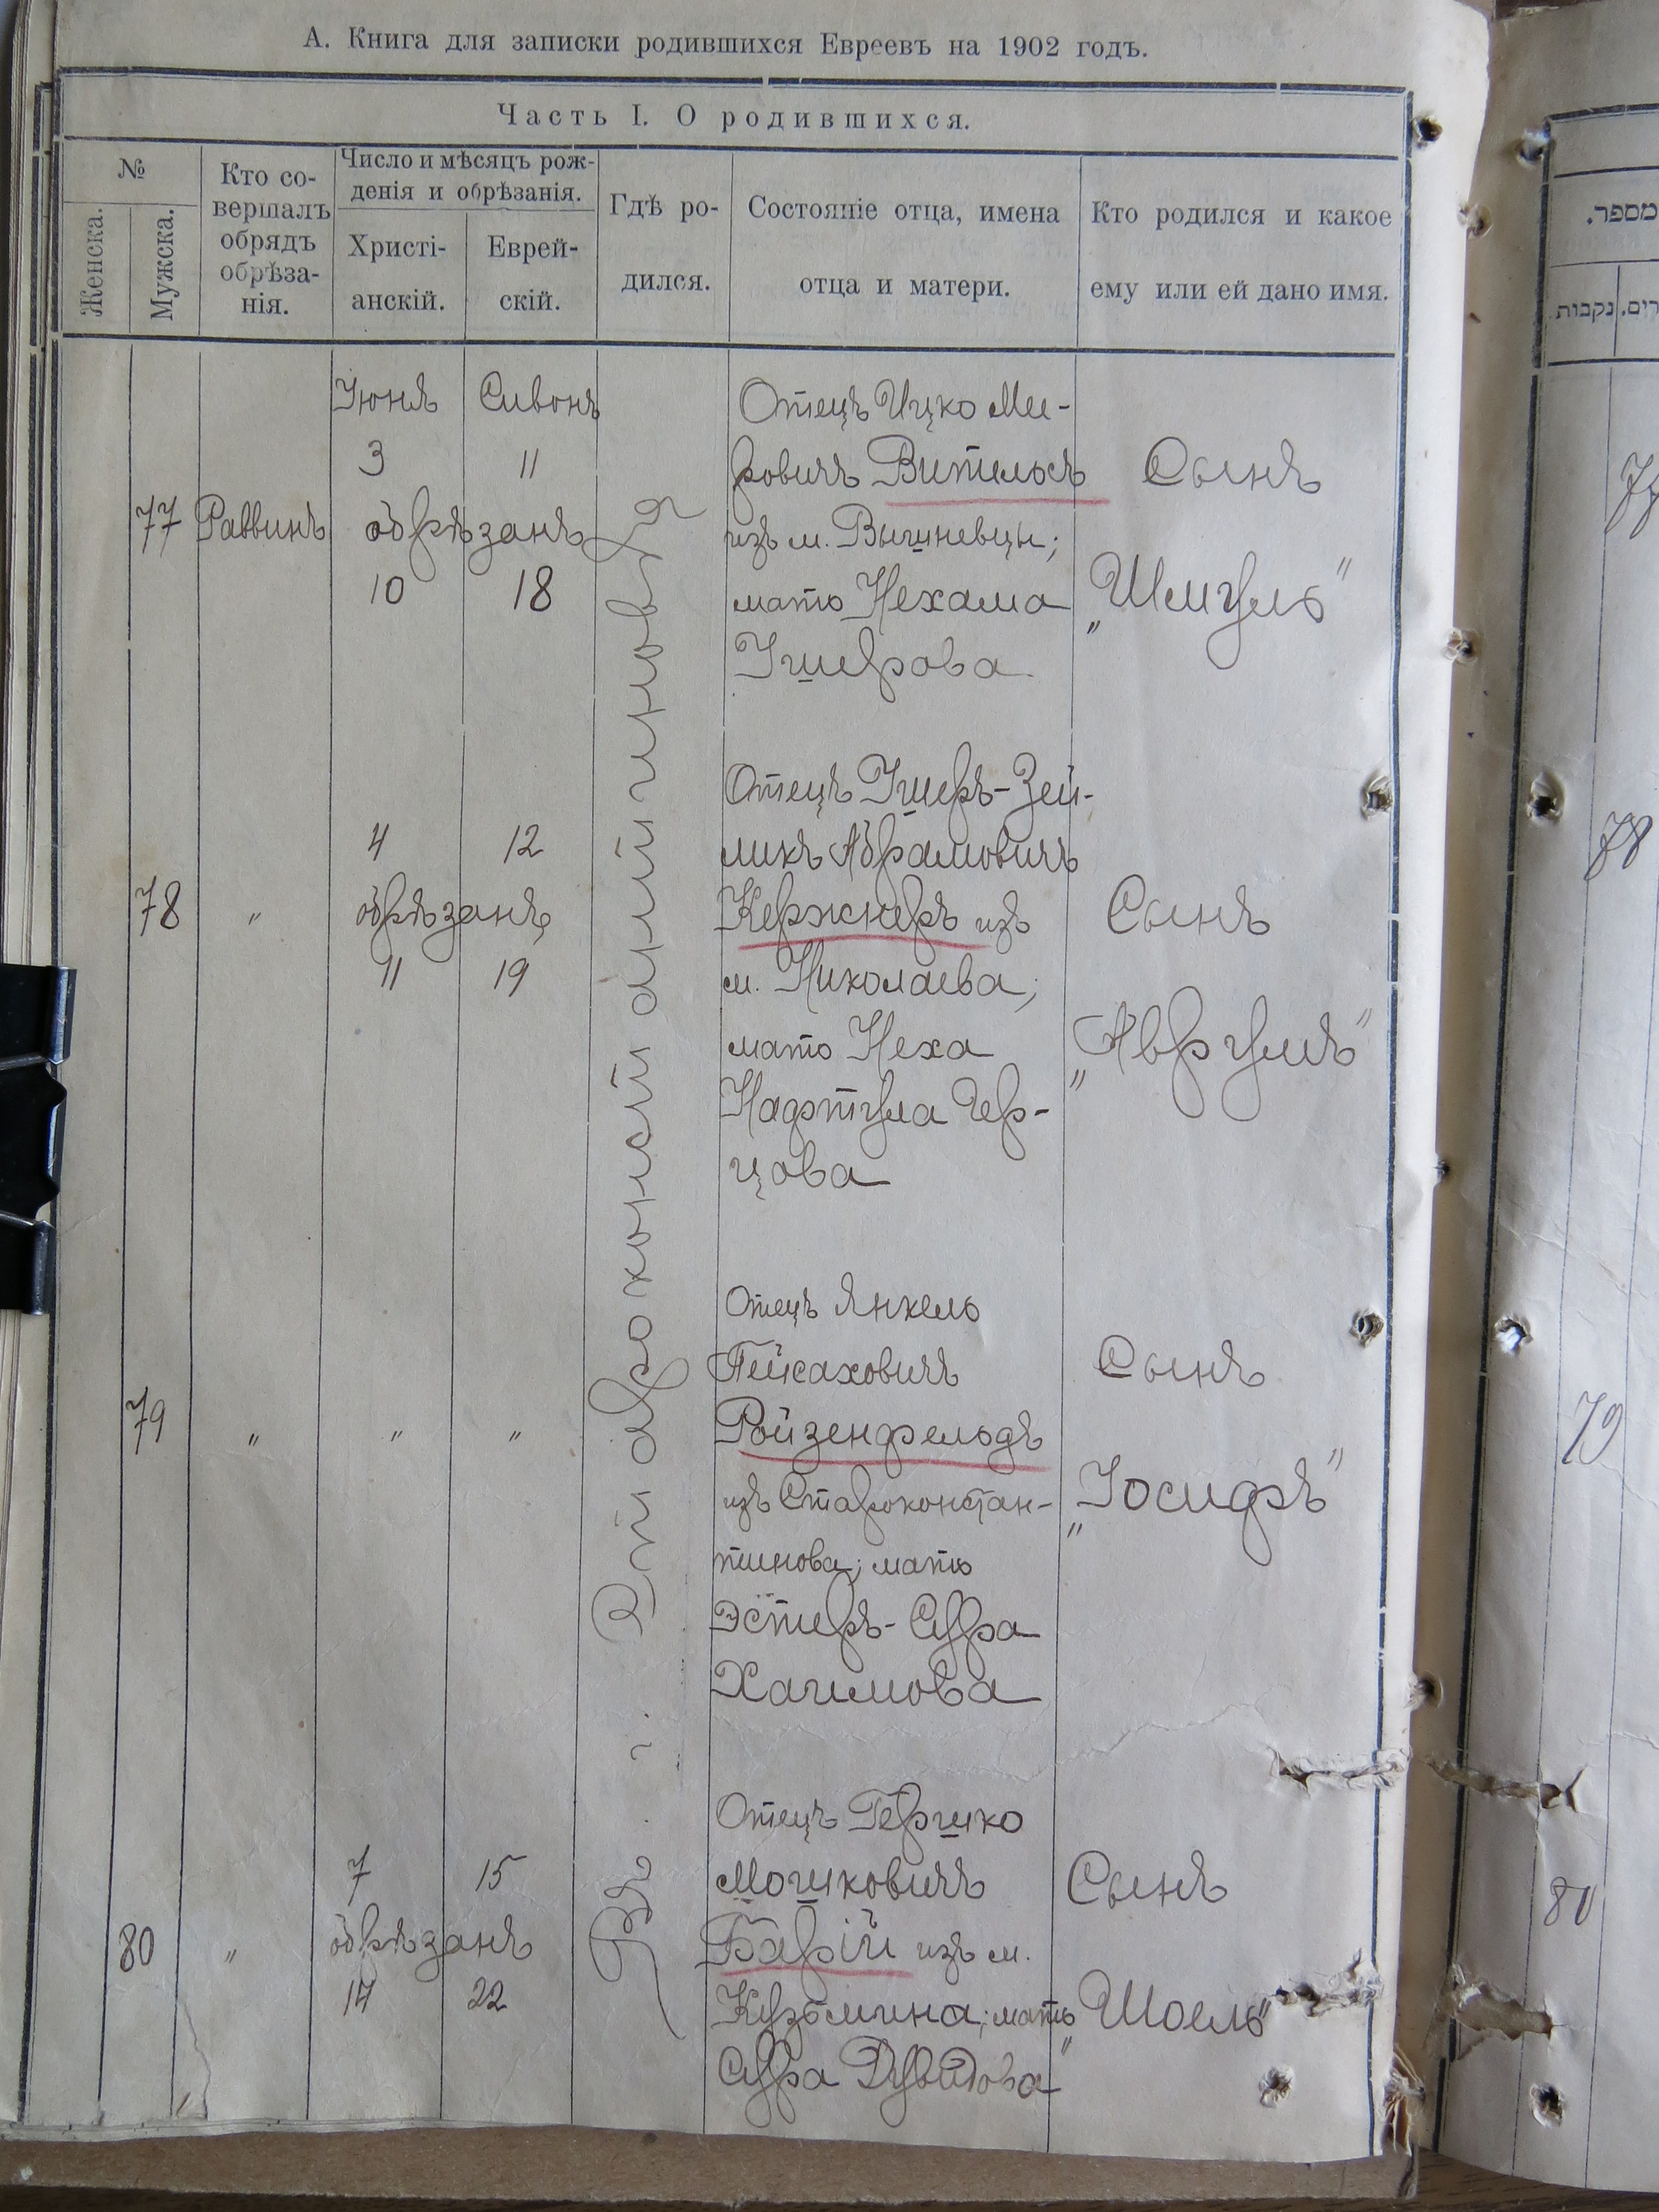 А. Книга для записки родившихся Евреевъ на 1902 годъ.
Часть I. О родившихся.
№
Женска.
Мужска.
Кто со-
вершалъ
обрядъ
обрѣза-
нія.
Число и мѣсяцъ рож-
денія и обрѣзанія.
Христі-
анскій.
Еврей-
скій.
Гдѣ ро-
дился.
Состояніе отца, имена
отца и матери.
Кто родился и какое
ему или ей дано имя.
Въ г. Староконстантиновѣ
77
Раввинъ
Іюня
Сивонъ
3
11
обрѣзанъ
10
18
Отецъ Ицко Ме-
ровичъ Вительсъ
изъ м. Вышневцы;
мать Нехама
Ушерова
Сынъ
„Шмуль“
78
„
4
12
обрѣзанъ
11
19
Отецъ Ушеръ-Зей-
ликъ Абрамовичъ
Кержнеръ изъ
м. Николаева;
мать Неха
Нафтула Гер-
цова
Сынъ
„Аврумъ“
79
„
„
„
Отецъ Янкель
Пейсаховичъ
Ройзенфельдъ
изъ Староконстан-
тинова; мать
Эстеръ-Сура
Хаимова
Сынъ
„Іосифъ“
80
„
7
15
обрѣзанъ
14
22
Отецъ Гершко
Мошковичъ
Барій изъ м.
Кузьмина; мать
Сура Дувидова
Сынъ
„Шоель“
מספר.
נקבות
77
78
79
80